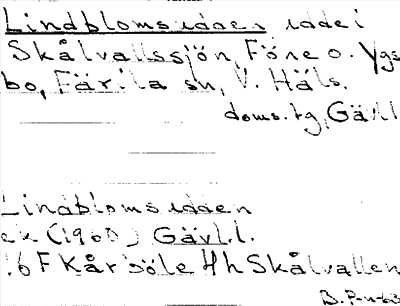 Lindblomsudden, udde i
Skålvallssjön, Föne o. Ygs
bo, Färila sn, V. Häls.
doms.tg, Gävl
Lindblomsudden
ek (1960) Gävl.l.
16 F Kårböle 4h Skålvallen